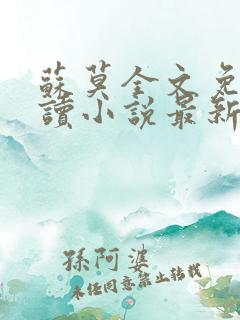 蘇莫全文免
讀小說最新
孫阿婆
未經同意禁止轉載